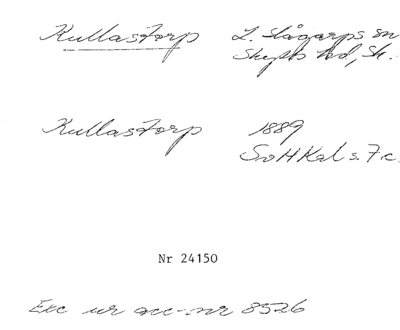 Kullastorp L. Slågarps sn
Skytts hd, Sk.
Kullastorp 1889
SvHKal s. 7 c.
Nr 24150
Exc ur acc-nr 8526